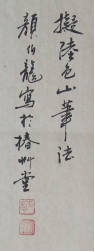 擬陸包山筆法
顏伯龍寫於椿艸堂